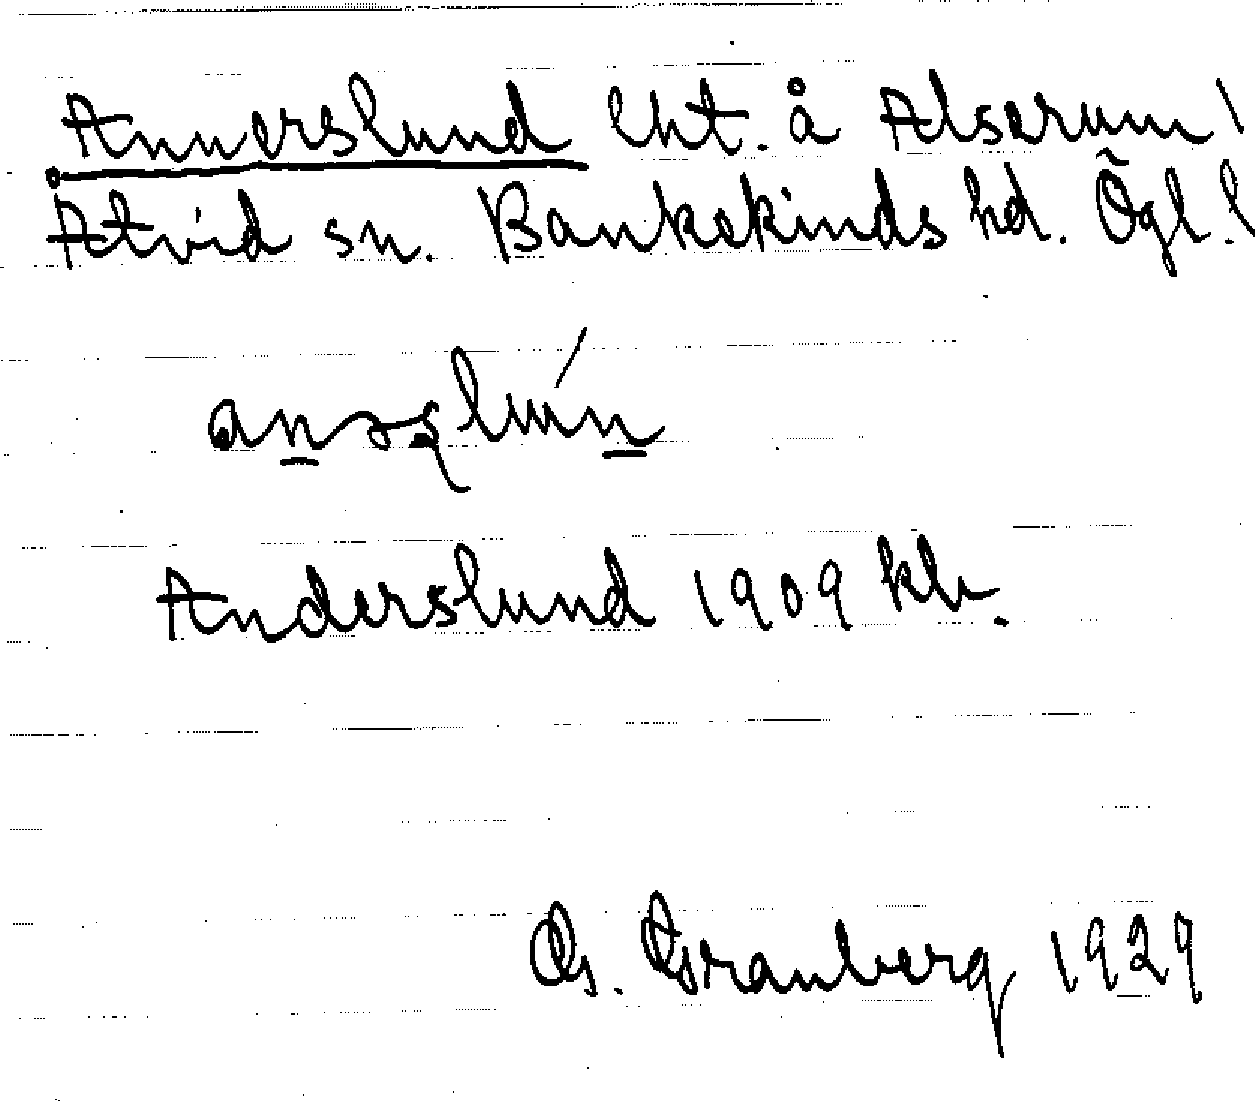 Annerslund lht. å Alserum
Åtvid sn. Bankekinds hd. Ögl. l
Anderslund 1909 kb.
G. Granberg 1929